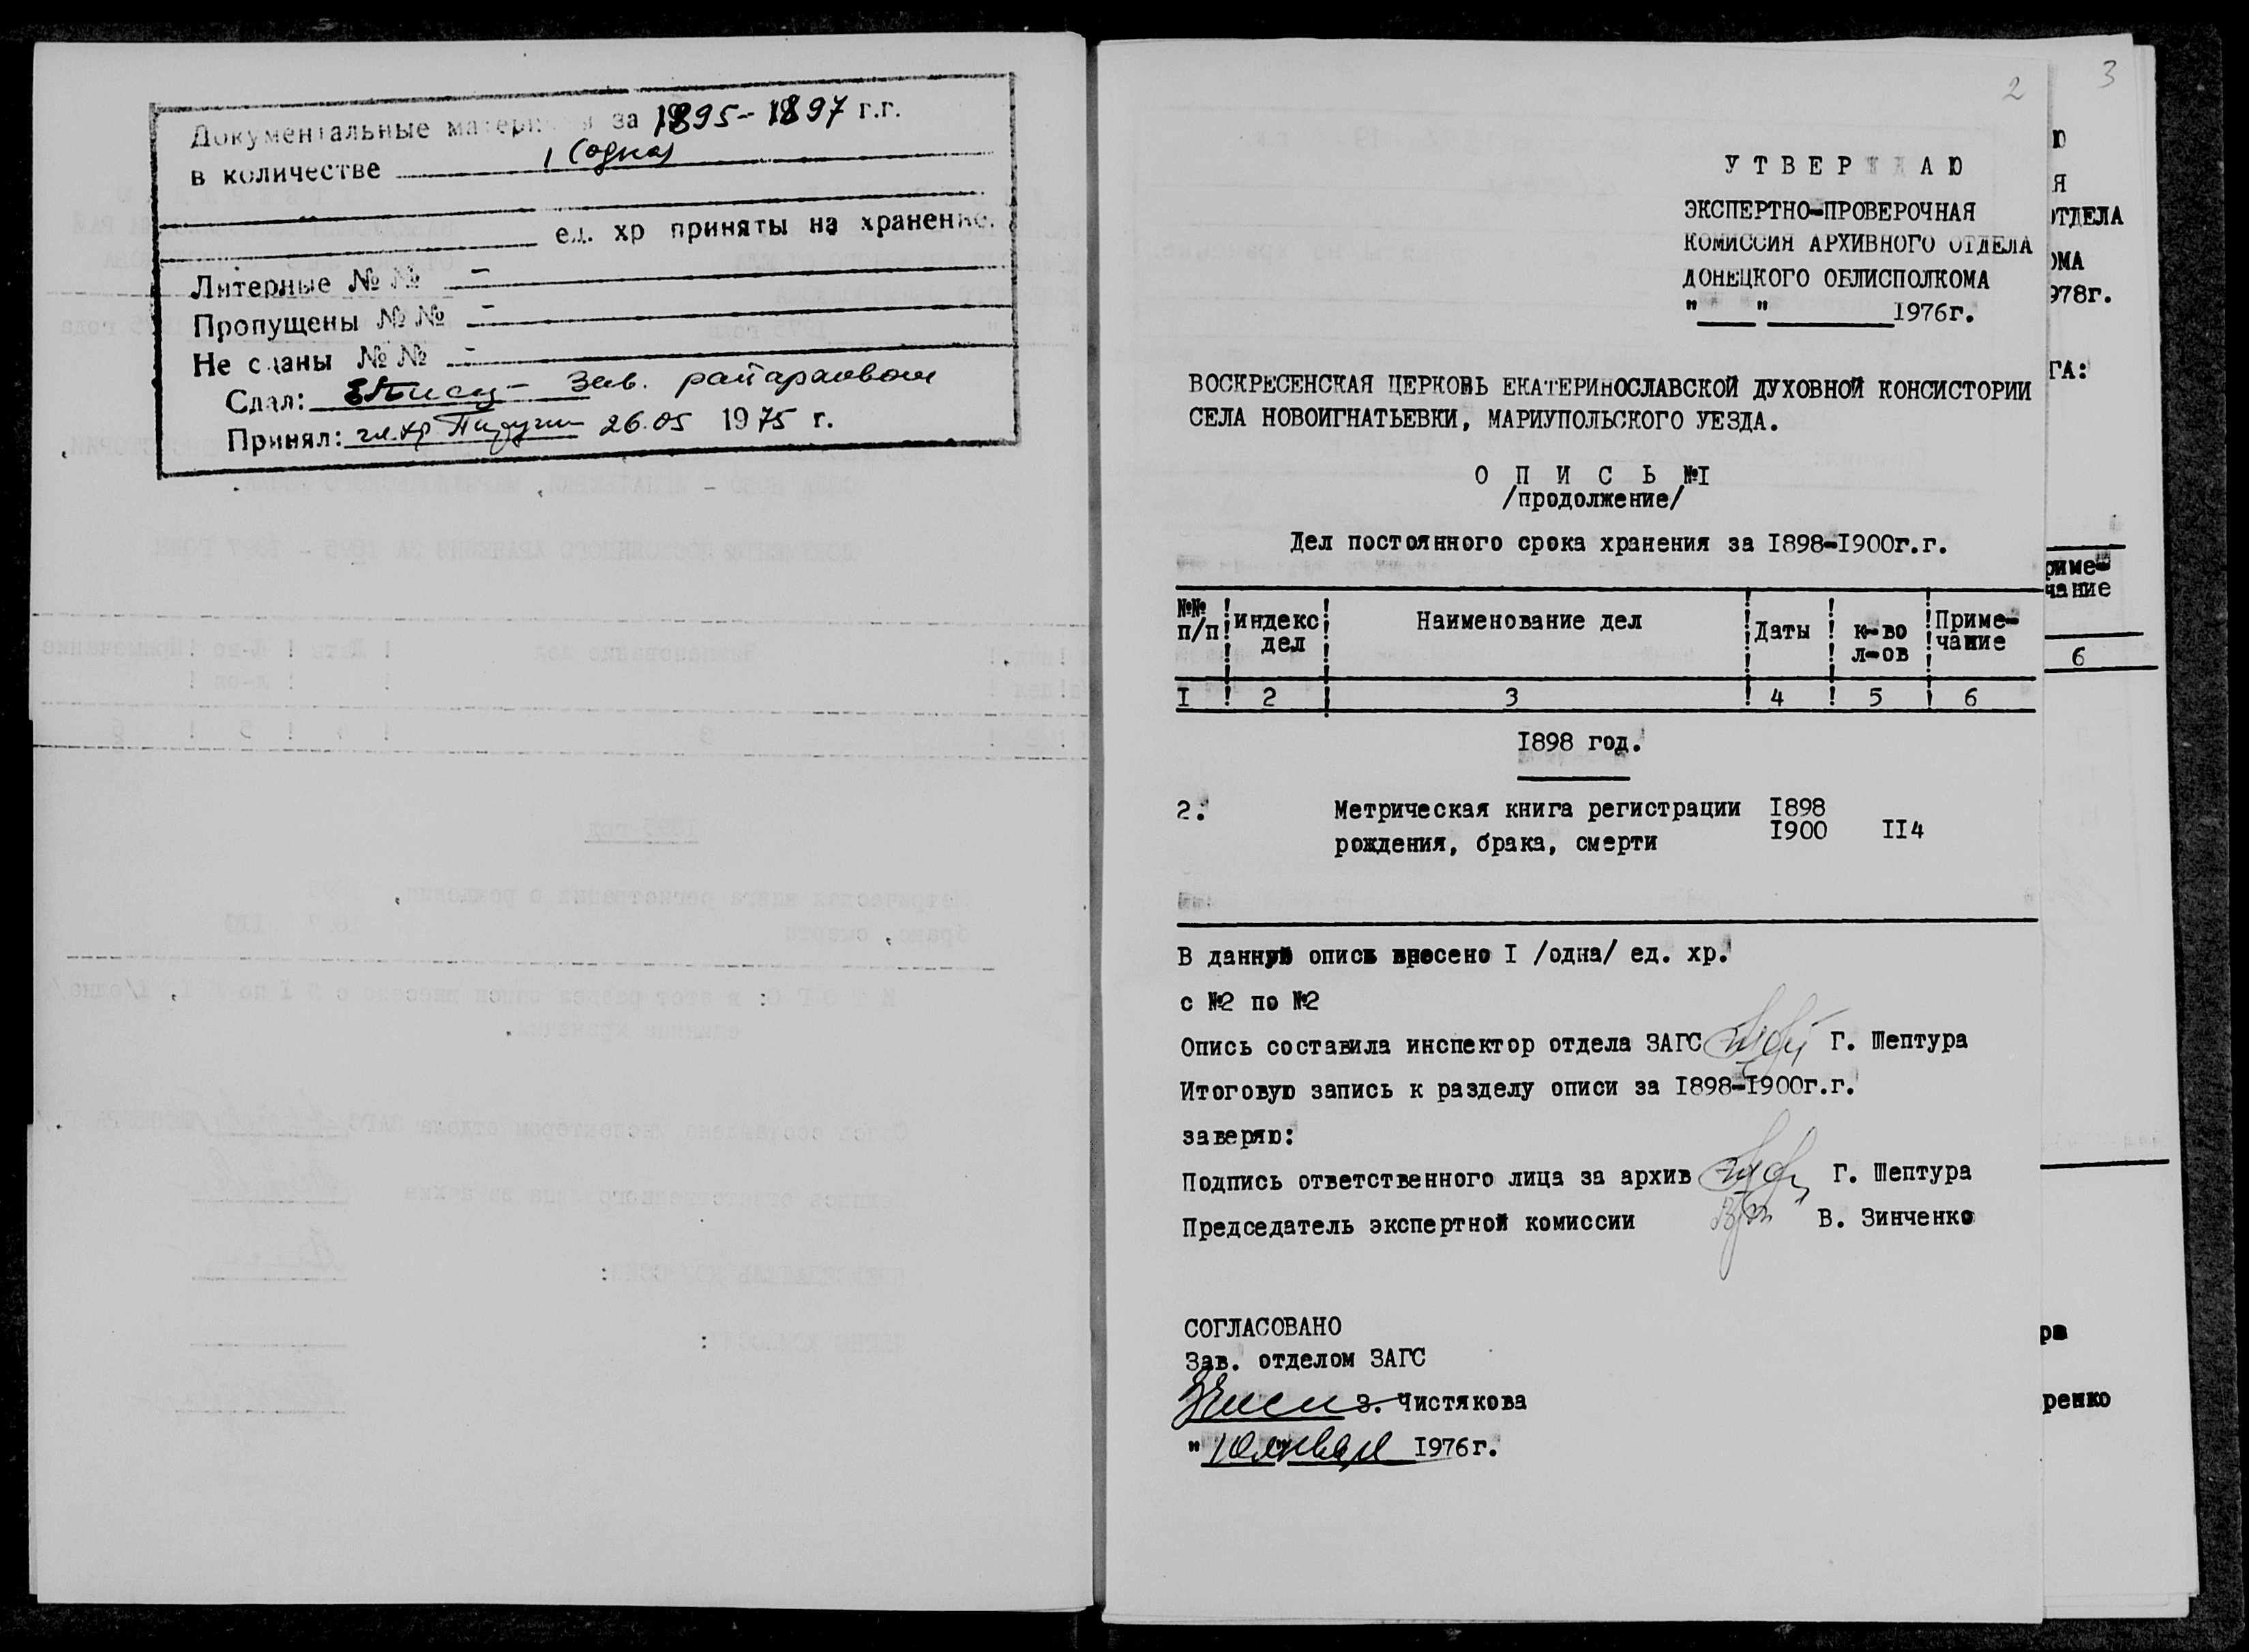 Документальные материалы за 1895-1897 г.г.
в количестве 1 (одна)
ед. хр приняты на хранение.
Литерные №№ –
Пропущены №№ –
Не сданы №№ –
Сдал: Зав. райархивом
Принял: гл. хр 26.05 1975 г.
2
УТВЕРЖДАЮ
ЭКСПЕРТНО-ПРОВЕРОЧНАЯ
КОМИССИЯ АРХИВНОГО ОТДЕЛА
ДОНЕЦКОГО ОБЛИСПОЛКОМА
"___"________1976г.
ВОСКРЕСЕНСКАЯ ЦЕРКОВЬ ЕКАТЕРИНОСЛАВСКОЙ ДУХОВНОЙ КОНСИСТОРИИ
СЕЛА НОВОИГНАТЬЕВКИ, МАРИУПОЛЬСКОГО УЕЗДА.
О П И С Ь №I
/продолжение/
Дел постоянного срока хранения за I898-I900г.г.
№№ п/п ! индекс дел ! Наименование дел ! Даты ! к-во л-ов ! Приме-чание
I ! 2 ! 3 ! 4 ! 5 ! 6
I898 год.
2. Метрическая книга регистрации I898
рождения, брака, смерти I900 II4
В данную опись внесено I /одна/ ед. хр.
с №2 по №2
Опись составила инспектор отдела ЗАГС Г. Шептура
Итоговую запись к разделу описи за I898-I900г.г.
заверяю:
Подпись ответственного лица за архив Г. Шептура
Председатель экспертной комиссии В. Зинченко
СОГЛАСОВАНО
Зав. отделом ЗАГС
З. Чистякова
"10" января I976г.
3
Ю
Я
ОТДЕЛА
ОМА
978г.
ГА:
риме-
чание
6
ра
ренко